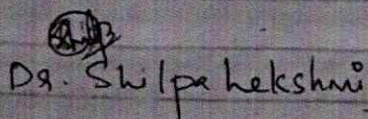 Dr. Shilpa Lekshmi